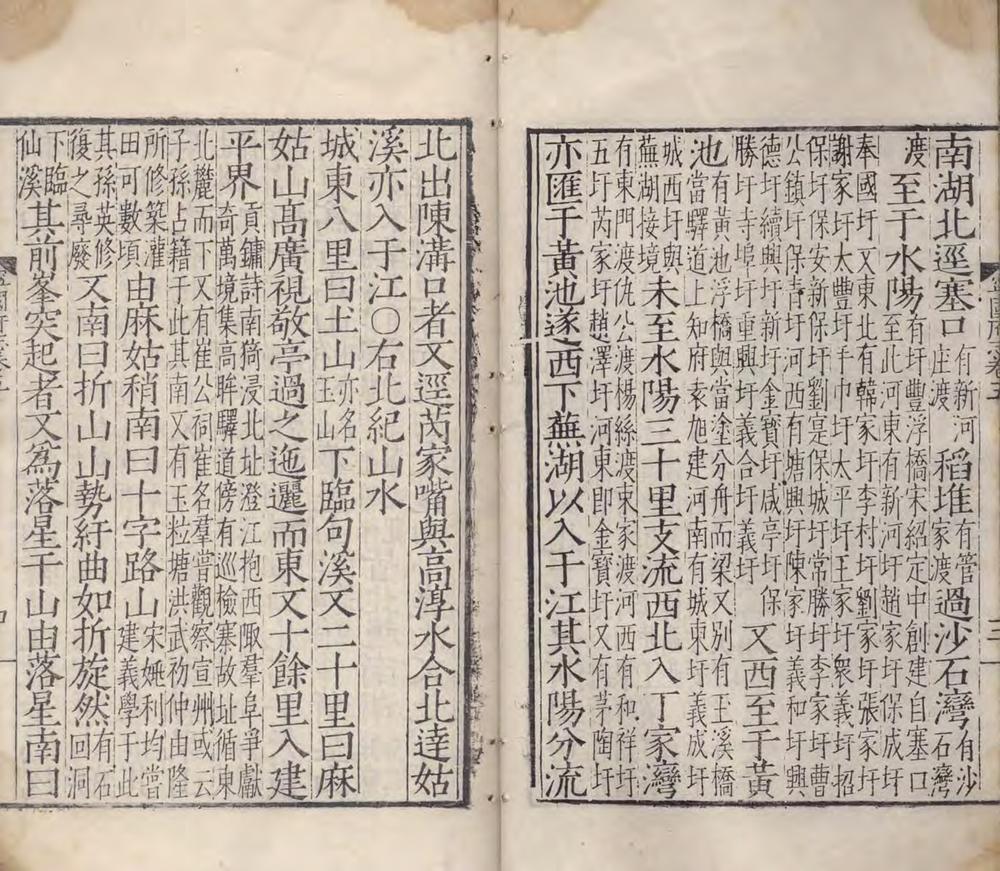 南湖北逕塞口有新河庄渡稻堆有管家渡過沙石灣有沙石灣
渡至于水陽有圩豐浮橋宋紹定中創建自塞口至此河東有新河圩趙家圩保成圩
奉國圩又東北有韓家圩李村圩劉家圩張家圩謝家圩太豐圩手巾圩太平圩王家圩衆義圩招
保圩保安新保圩劉是保城圩常勝圩李家圩曹公鎮圩保青圩河西有塘興圩陳家圩義和圩興
德圩續興圩新圩金寶圩咸亭圩保勝圩寺埠圩重興圩義合圩義圩又西至于黃
池有黃池浮橋與當塗分舟而梁又別有玉溪橋當驛道上知府袁旭建河南有城東圩義成圩
城西圩與蕪湖接境未至水陽三十里支流西北入丁家灣
有東門渡仇公渡楊絲渡東家渡河西有和祥圩五圩芮家圩趙澤圩河東即金寶圩又有茅陶圩
亦匯于黃池遂西下蕪湖以入于江其水陽分流
北出陳溝口者又逕芮家嘴與高淳水合北達姑
溪亦入于江〇右北紀山水
城東八里曰土山亦名玉山下臨句溪又二十里曰麻
姑山高廣視敬亭過之迤邐而東又十餘里入建
平界貢鏞詩南猗浸北址澄江抱西陬羣阜爭獻奇萬境集高眸驛道傍有巡檢寨故址循東
北麓而下又有崔公祠崔名羣嘗觀察宣州或云子孫占籍于此其南又有玉粒塘洪武初仲由隆
所修築灌田可數頃由麻姑稍南曰十字路山宋姚利均嘗建義學于此
其孫英修復之尋廢又南曰折山山勢紆曲如折旋然有石洞回
下臨仙溪其前峯突起者又爲落星干山由落星南曰